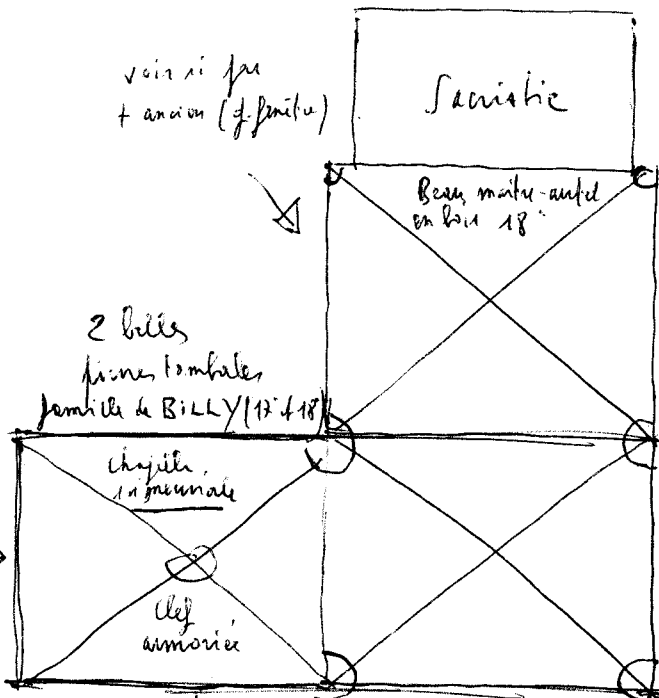 voir si pas
+ ancien (cf. fenêtre)
Sacristie
Beau maître-autel
en bois 18e
2 belles
pierres tombales
famille de BILLY (17e et 18e)
chapelle
seigneuriale
clef
armoriée